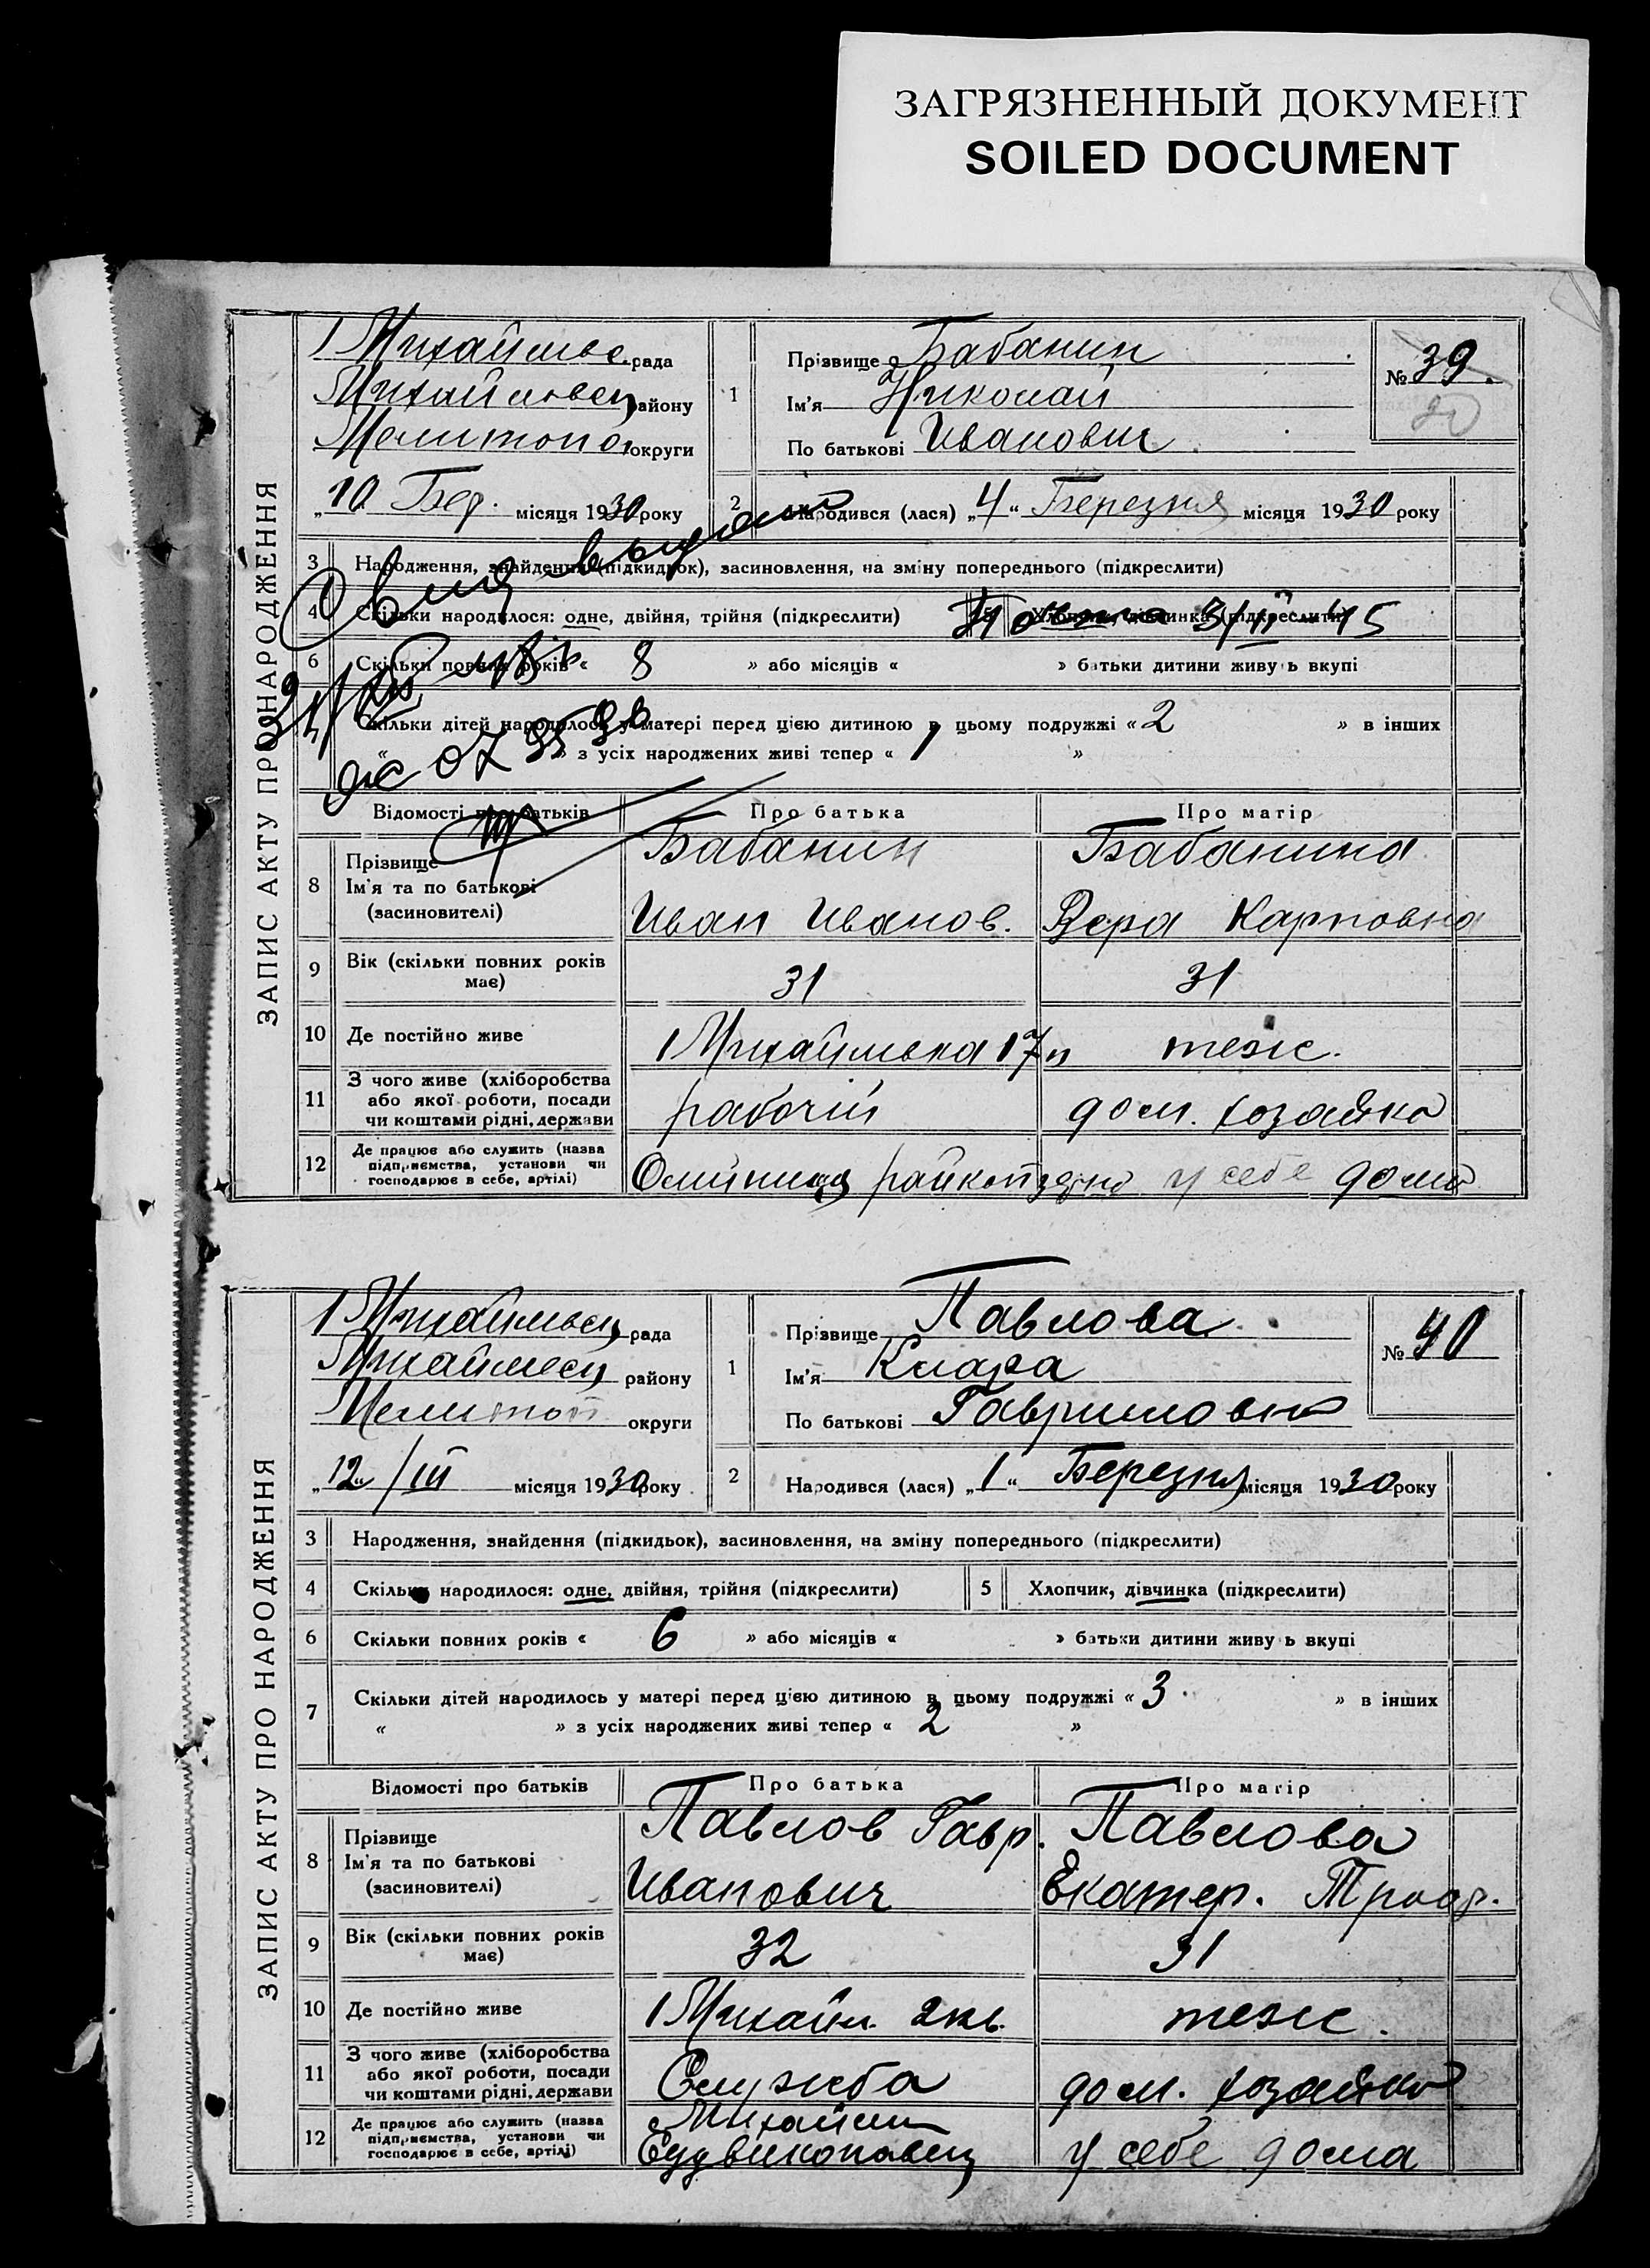 ЗАГРЯЗНЕННЫЙ ДОКУМЕНТ
SOILED DOCUMENT
ЗАПИС АКТУ ПРО НАРОДЖЕННЯ
рада
району
Мелитопол округи
„10 Бер. місяця 1930 року
1
Прізвище Бабанин
Ім'я Николай
По батькові Иванович
№ 39.
2 Народився (лася) „4“ Березня місяця 1930 року
3 Народження, знайдення (підкидьок), засиновлення, на зміну попереднього (підкреслити)
4 Скільки народилося: одне, двійня, трійня (підкреслити)
5 Хлопчик, дівчинка (підкреслити)
6 Скільки повних років « 8 » або місяців « » батьки дитини живуть вкупі
Скільки дітей народилось у матері перед цією дитиною в цьому подружжі « 2 » в інших
« » з усіх народжених живі тепер « 1 »
Відомості про батьків Про батька Про матір
8 Прізвище Ім'я та по батькові (засиновителі)
Бабанин Бабанина
Иван Иванов. Вера Карповна
9 Вік (скільки повних років має) 31 31
10 Де постійно живе 1 Михайлывка теж.
11 З чого живе (хліборобства або якої роботи, посади чи коштами рідні, держави рабочий дом. хозяйка
12 Де працює або служить (назва підприємства, установи чи господарює в себе, артілі) у себе дома
ЗАПИС АКТУ ПРО НАРОДЖЕННЯ
рада
району
Мелитоп округи
„12“/III місяця 1930 року
1
Прізвище Павлова
Ім'я Клара
По батькові Гавриловна
№ 40
2 Народився (лася) „1“ Березня місяця 1930 року
3 Народження, знайдення (підкидьок), засиновлення, на зміну попереднього (підкреслити)
4 Скільки народилося: одне, двійня, трійня (підкреслити)
5 Хлопчик, дівчинка (підкреслити)
6 Скільки повних років « 6 » або місяців « » батьки дитини живуть вкупі
7 Скільки дітей народилось у матері перед цією дитиною в цьому подружжі « 3 » в інших
« » з усіх народжених живі тепер « 2 »
Відомості про батьків Про батька Про матір
8 Прізвище Ім'я та по батькові (засиновителі)
Павлов Гавр. Павлова
Иванович Екатер.
9 Вік (скільки повних років має) 32 31
10 Де постійно живе 1 Михайл. 2 кв. теж.
11 З чого живе (хліборобства або якої роботи, посади чи коштами рідні, держави Служба дом. хозяйка
12 Де працює або служить (назва підприємства, установи чи господарює в себе, артілі) у себе дома